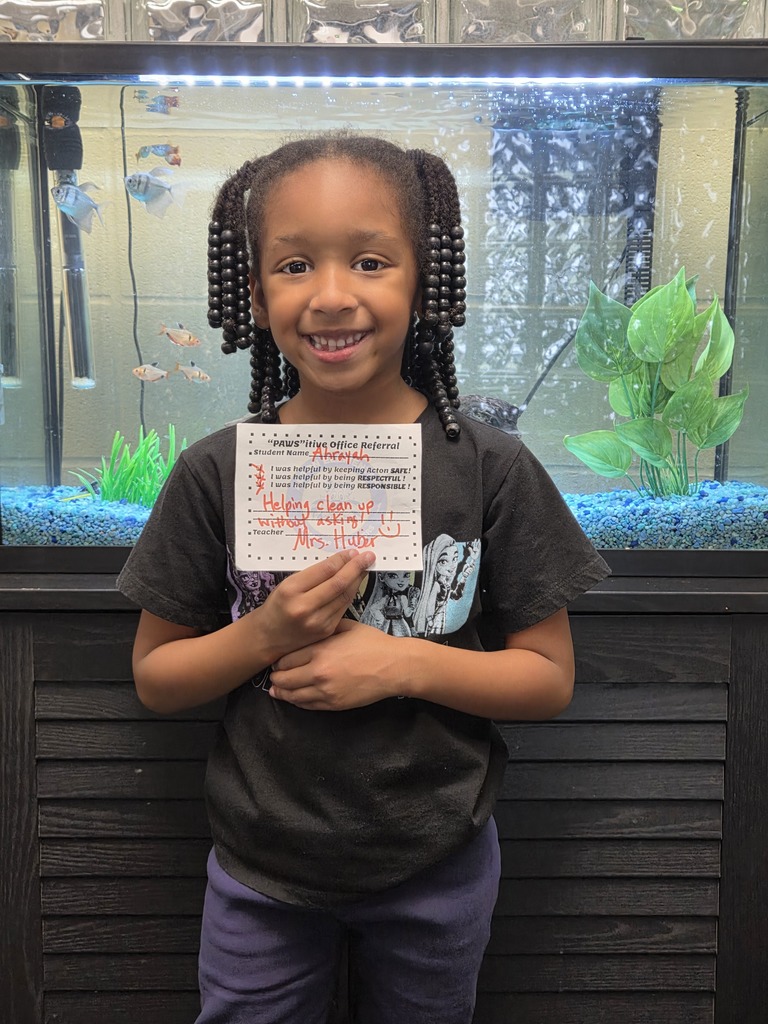 "PAWS"itive Office Referral
Student Name Ahrayah
I was helpful by keeping Acton SAFE!
I was helpful by being RESPECTFUL!
I was helpful by being RESPONSIBLE!
Helping clean up
without asking!
Teacher Mrs. Huber